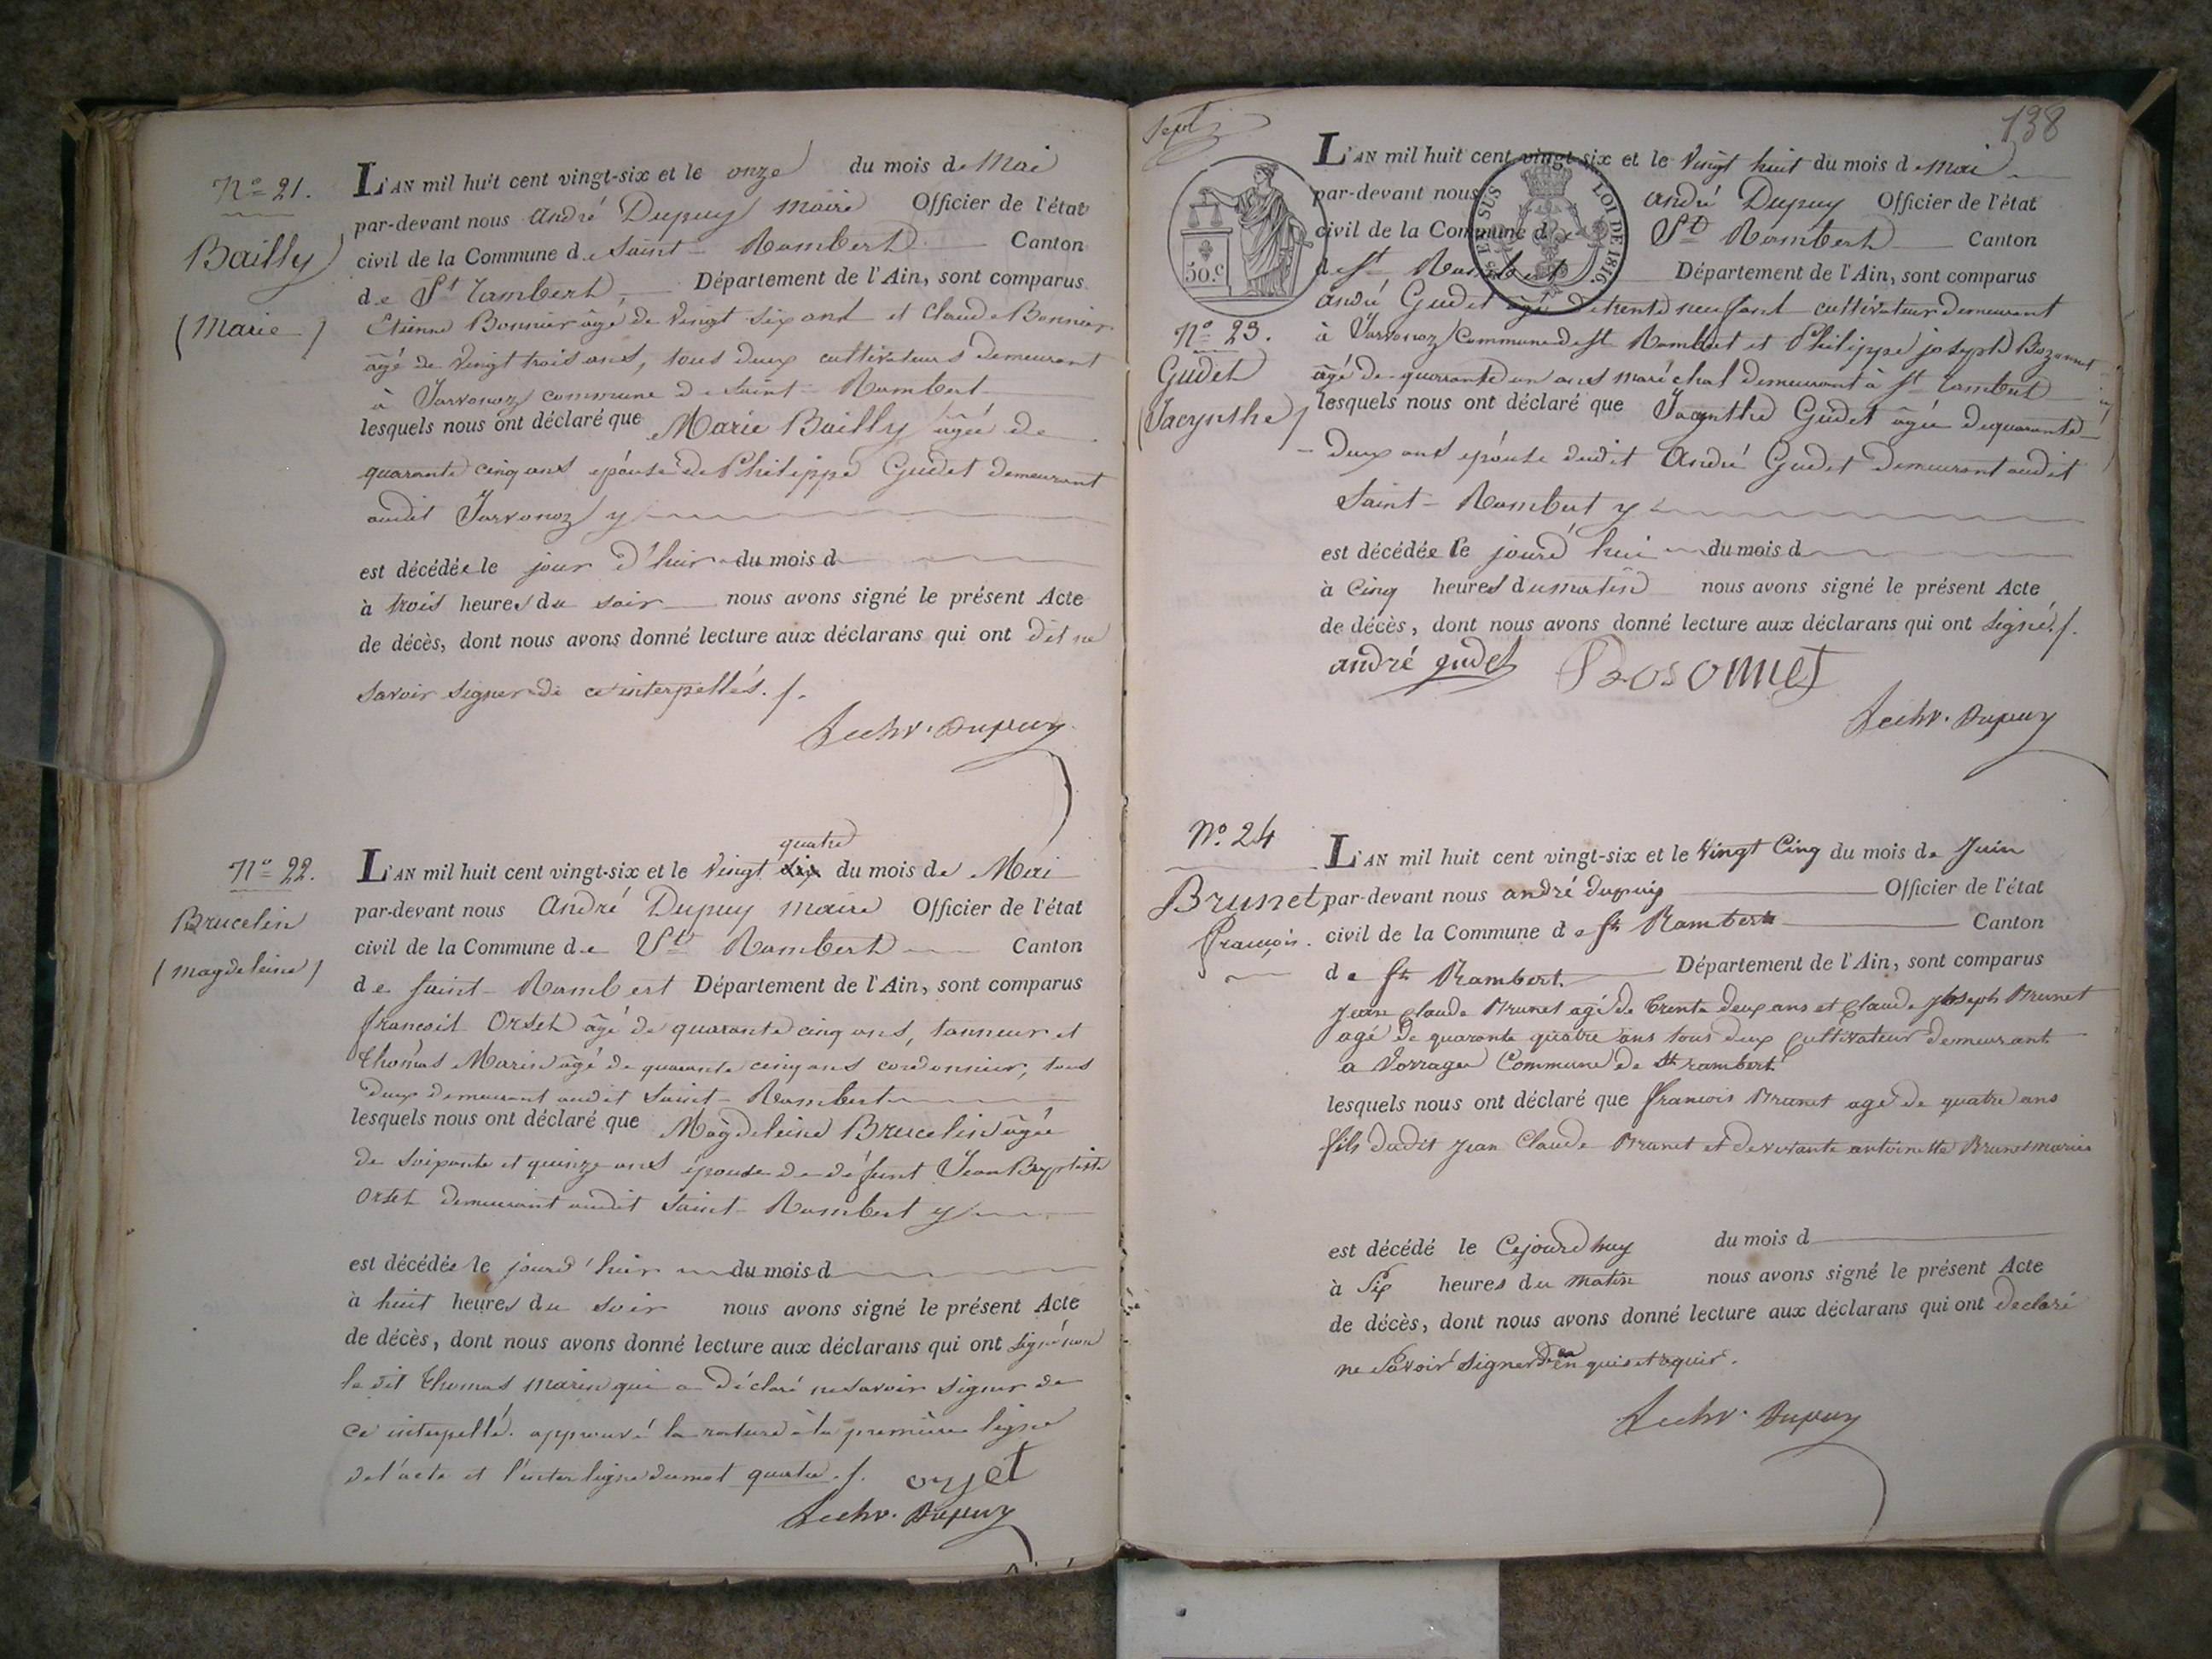 N° 21.
Bailly
(Marie)
L'AN mil huit cent vingt-six et le onze du mois de Mai
par-devant nous André Dupuy maire Officier de l'état
civil de la Commune de Saint-Rambert Canton
de St Rambert Département de l'Ain, sont comparus
Etienne Bonnier âgé de vingt six ans et Claude Bonnier
âgé de vingt trois ans, tous deux cultivateurs demeurant
à Javornoz commune de Saint-Rambert
lesquels nous ont déclaré que Marie Bailly âgée de
quarante cinq ans épouse de Philippe Gudet demeurant
audit Javornoz y
est décédée le jour d'hui du mois d
à trois heures du soir nous avons signé le présent Acte
de décès, dont nous avons donné lecture aux déclarans qui ont dit ne
savoir signer de ce interpellés.
Dupuy
N° 22.
Brucelin
(Magdeleine)
quatre
L'AN mil huit cent vingt-six et le Vingt six du mois de Mai
par-devant nous André Dupuy maire Officier de l'état
civil de la Commune de St Rambert Canton
de Saint-Rambert Département de l'Ain, sont comparus
françois Orset âgé de quarante cinq ans, tanneur et
Thomas Marin âgé de quarante cinq ans cordonnier, tous
deux demeurant audit Saint-Rambert
lesquels nous ont déclaré que Magdeleine Brucelin âgée
de soixante et quinze ans épouse de défunt Jean Baptiste
Orset demeurant audit Saint-Rambert y
est décédée le jourd'hui du mois d
à huit heures du soir nous avons signé le présent Acte
de décès, dont nous avons donné lecture aux déclarans qui ont signé non
le dit Thomas Marin qui a déclaré ne savoir signer de
ce interpellé. approuvé la rature à la première ligne
de l'acte et l'interligne du mot quatre.
orset
Dupuy
Sept
138
50.c
LOI DE 1816.
L'AN mil huit cent vingt-six et le Vingt huit du mois de Mai
par-devant nous André Dupuy Officier de l'état
civil de la Commune de St Rambert Canton
de St Rambert Département de l'Ain, sont comparus
N° 23.
Gudet
(Jacynthe)
André Gudet âgé de trente neuf ans cultivateur demeurant
à Javornoz Commune de St Rambert et Philippe joseph Bozonnet
âgé de quarante un ans maréchal demeurant à St Rambert
lesquels nous ont déclaré que Jacynthe Gudet âgée de quarante
deux ans épouse dudit André Gudet demeurant audit
Saint-Rambert y
est décédée le jourd'hui du mois d
à Cinq heures du matin nous avons signé le présent Acte
de décès, dont nous avons donné lecture aux déclarans qui ont Signé.
andré gudet Bosonnet
Dupuy
N° 24
Brunet
François.
L'AN mil huit cent vingt-six et le Vingt Cinq du mois de Juin
par-devant nous andré dupuis Officier de l'état
civil de la Commune de St Rambert Canton
de St Rambert. Département de l'Ain, sont comparus
Jean Claude Brunet agé de trente deux ans et Claude Joseph Brunet
agé de quarante quatre ans tous deux Cultivateur demeurant
a Vorrage Commune de St rambert
lesquels nous ont déclaré que francois Brunet agé de quatre ans
fils dudit Jean Claude Brunet et de vivante antoinette Brunet mariés
est décédé le Cejourdhuy du mois d
à Six heures du matin nous avons signé le présent Acte
de décès, dont nous avons donné lecture aux déclarans qui ont declaré
ne Savoir Signer
Dupuy